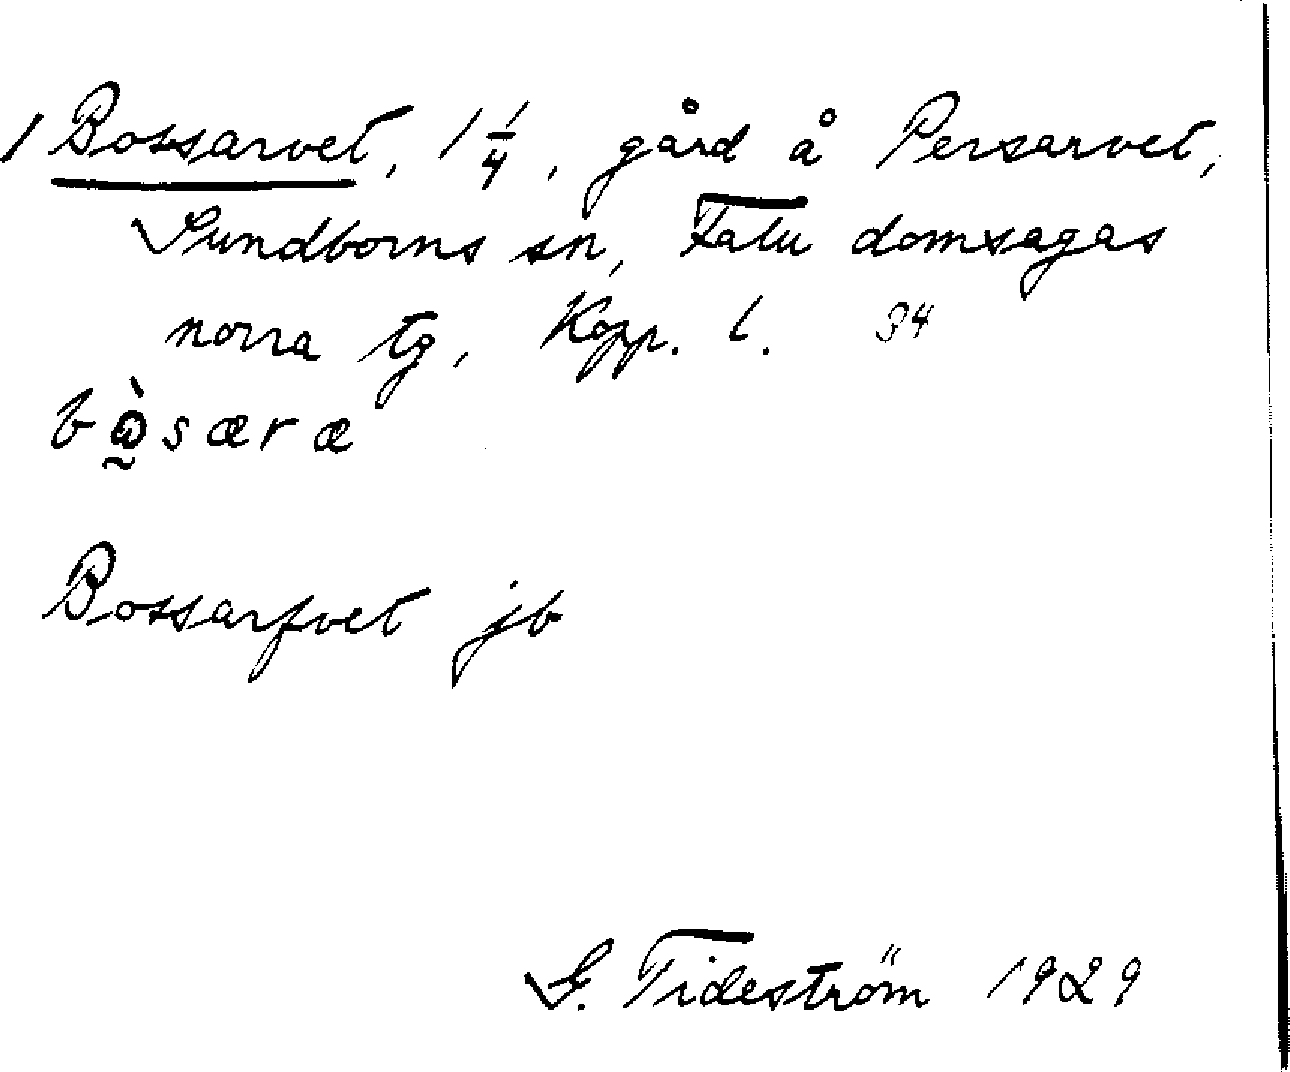 1 Bossarvet, 1 1/4, gård å Persarvet,
Sundborns sn, Falu domsagas
norra tg, Kopp. l. 34
bò̰særæ
Bossarfvet jb
G. Tideström 1929